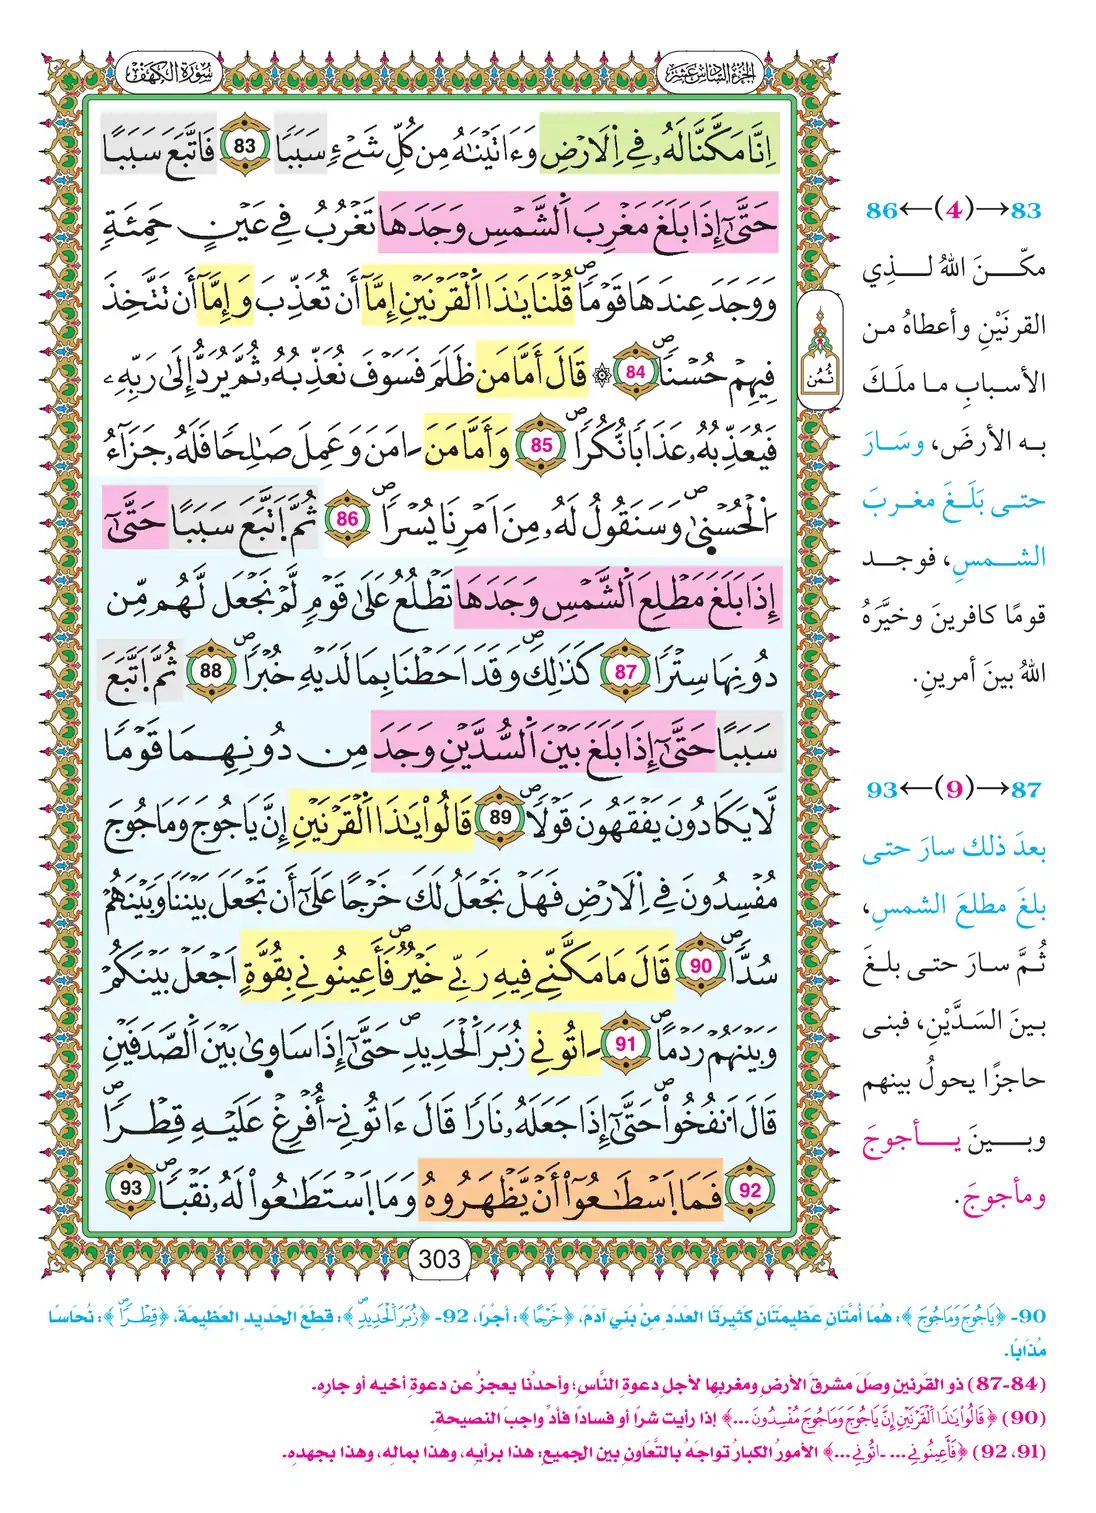 الجزء السادس عشر
سورة الكهف
إِنَّا مَكَّنَّا لَهُۥ فِے اِ۬لَارْضِ وَءَاتَيْنَٰهُ مِن كُلِّ شَےْءٖ سَبَباٗ 83 فَاتَّبَعَ سَبَباً
حَتَّىٰٓ إِذَا بَلَغَ مَغْرِبَ اَ۬لشَّمْسِ وَجَدَهَا تَغْرُبُ فِے عَيْنٍ حَمِئَةٖ
وَوَجَدَ عِندَهَا قَوْماٗۖ قُلْنَا يَٰذَا اَ۬لْقَرْنَيْنِ إِمَّآ أَن تُعَذِّبَ وَإِمَّآ أَن تَتَّخِذَ
فِيهِمْ حُسْناٗۖ 84 ۞ قَالَ أَمَّا مَن ظَلَمَ فَسَوْفَ نُعَذِّبُهُۥ ثُمَّ يُرَدُّ إِلَىٰ رَبِّهِۦ
فَيُعَذِّبُهُۥ عَذَاباٗ نُّكُراٗۖ 85 وَأَمَّا مَنَ اٰمَنَ وَعَمِلَ صَٰلِحاٗ فَلَهُۥ جَزَآءُ
اُ۬لْحُسْنَىٰۖ وَسَنَقُولُ لَهُۥ مِنَ اَمْرِنَا يُسْراٗۖ 86 ثُمَّ اَ۪تَّبَعَ سَبَباً حَتَّىٰٓ
إِذَا بَلَغَ مَطْلِعَ اَ۬لشَّمْسِ وَجَدَهَا تَطْلُعُ عَلَىٰ قَوْمٖ لَّمْ نَجْعَل لَّهُم مِّن
دُونِهَا سِتْراٗ 87 كَذَٰلِكَۖ وَقَدَ اَحَطْنَا بِمَا لَدَيْهِ خُبْراٗۖ 88 ثُمَّ اَ۪تَّبَعَ
سَبَباً حَتَّىٰٓ إِذَا بَلَغَ بَيْنَ اَ۬لسُّدَّيْنِ وَجَدَ مِن دُونِهِمَا قَوْماٗ
لَّا يَكَادُونَ يَفْقَهُونَ قَوْلاٗۖ 89 قَالُواْ يَٰذَا اَ۬لْقَرْنَيْنِ إِنَّ يَاجُوجَ وَمَاجُوجَ
مُفْسِدُونَ فِے اِ۬لَارْضِ فَهَلْ نَجْعَلُ لَكَ خَرْجاً عَلَىٰٓ أَن تَجْعَلَ بَيْنَنَا وَبَيْنَهُمْ
سُدّاٗۖ 90 قَالَ مَا مَكَّنِّے فِيهِ رَبِّے خَيْرٞۖ فَأَعِينُونِے بِقُوَّةٍ اَجْعَلْ بَيْنَكُمْ
وَبَيْنَهُمْ رَدْماً 91 اٰتُونِے زُبَرَ اَ۬لْحَدِيدِۖ حَتَّىٰٓ إِذَا سَاوَىٰ بَيْنَ اَ۬لصَّدَفَيْنِ
قَالَ اَ۟نفُخُواْۖ حَتَّىٰٓ إِذَا جَعَلَهُۥ نَاراٗ قَالَ ءَاتُونِےٓ أُفْرِغْ عَلَيْهِ قِطْراٗۖ
92 فَمَا اَ۪سْطَٰعُوٓاْ أَنْ يَّظْهَرُوهُ وَمَا اَ۪سْتَطَٰعُواْ لَهُۥ نَقْباٗۖ 93
303
ثُمُن
83→(4)←86
مكّنَ اللهُ لذِي
القرنَيْنِ وأعطاهُ من
الأسبابِ ما ملَكَ
به الأرضَ، وسَارَ
حتى بَلَغَ مغربَ
الشمسِ، فوجد
قومًا كافرينَ وخيَّرَهُ
اللهُ بينَ أمرينِ.
87→(9)←93
بعدَ ذلك سارَ حتى
بلغَ مطلعَ الشمسِ،
ثُمَّ سارَ حتى بلغَ
بينَ السَدَّيْنِ، فبنى
حاجزًا يحولُ بينهم
وبينَ يأجوجَ
ومأجوجَ.
90- ﴿يَاجُوجَ وَمَاجُوجَ﴾: هُمَا أُمَّتَانِ عَظِيمَتَانِ كَثِيرَتَا العَدَدِ مِنْ بَنِي آدَمَ، ﴿خَرْجاً﴾: أَجْرًا، 92- ﴿زُبَرَ اَ۬لْحَدِيدِۖ﴾: قِطَعَ الحَدِيدِ العَظِيمَةَ، ﴿قِطْراٗۖ﴾: نُحَاسًا
مُذَابًا.
(84-87) ذو القرنينِ وصلَ مشرقَ الأرضِ ومغربِها لأجلِ دعوةِ النَّاسِ؛ وأحدُنا يعجزُ عن دعوةِ أخيه أو جارِه.
(90) ﴿قَالُواْ يَٰذَا اَ۬لْقَرْنَيْنِ إِنَّ يَاجُوجَ وَمَاجُوجَ مُفْسِدُونَ ...﴾ إذا رأيت شرًا أو فسادًا فأدِّ واجبَ النصيحةِ.
(91، 92) ﴿فَأَعِينُونِے ... اٰتُونِے ...﴾ الأمورُ الكبارُ تواجَهُ بالتَّعاونِ بين الجميعِ: هذا برأيِه، وهذا بمالِه، وهذا بجهدِه.